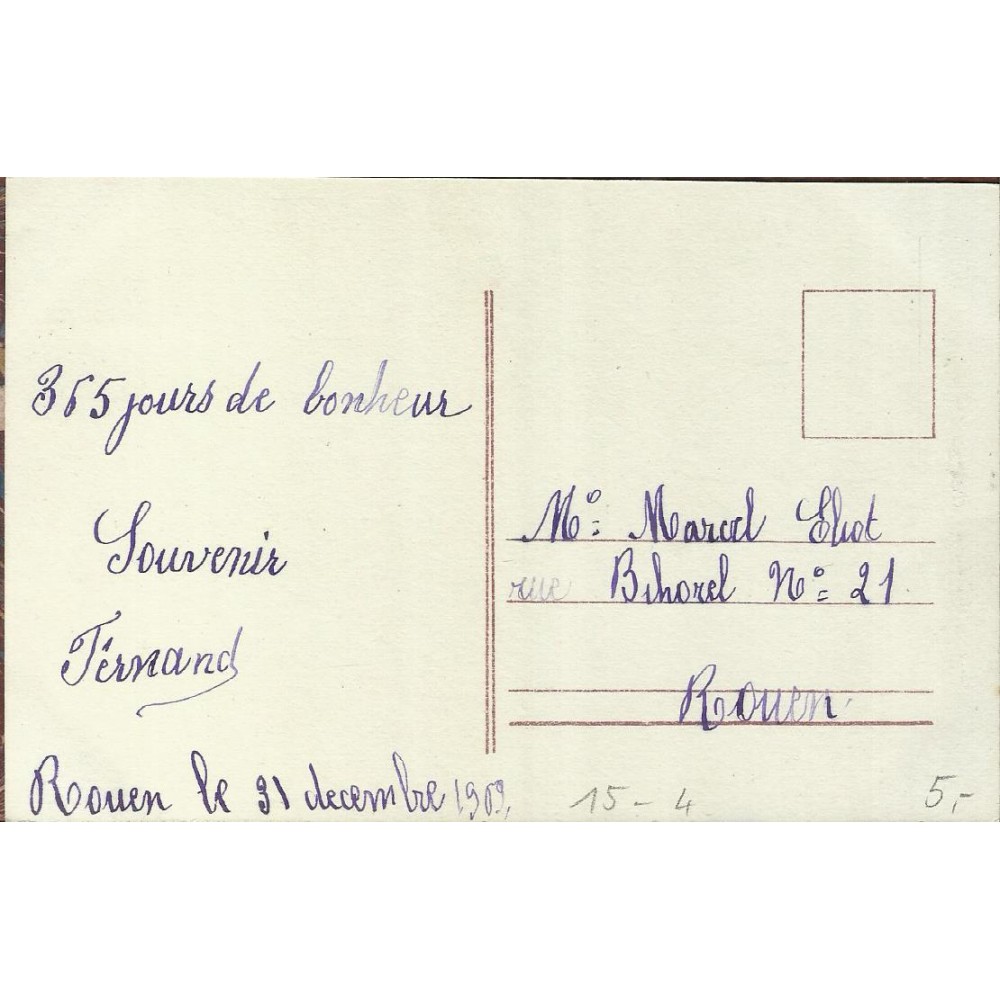 365 jours de bonheur
Souvenir
Férnand
Rouen le 31 decembre 1909,
Mº= Marcel Eliot
rue Bihorel Nº= 21
Rouen.
15 - 4
5,-